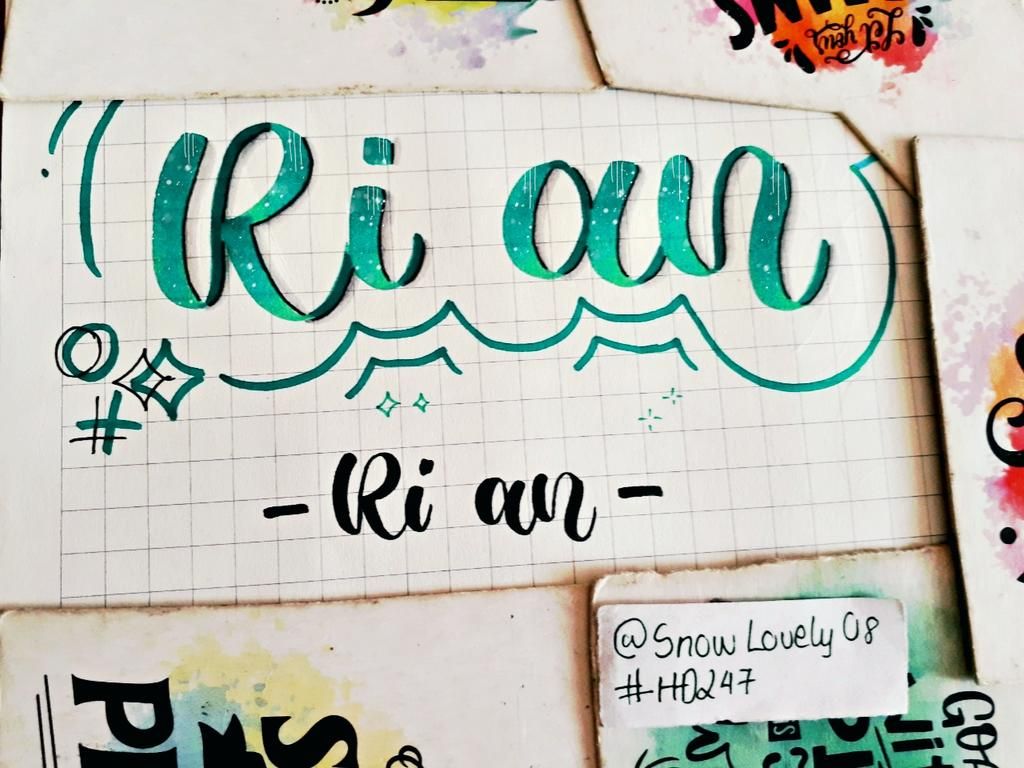 Ri an
#
- Ri an -
@Snow Lovely 08
#HD247